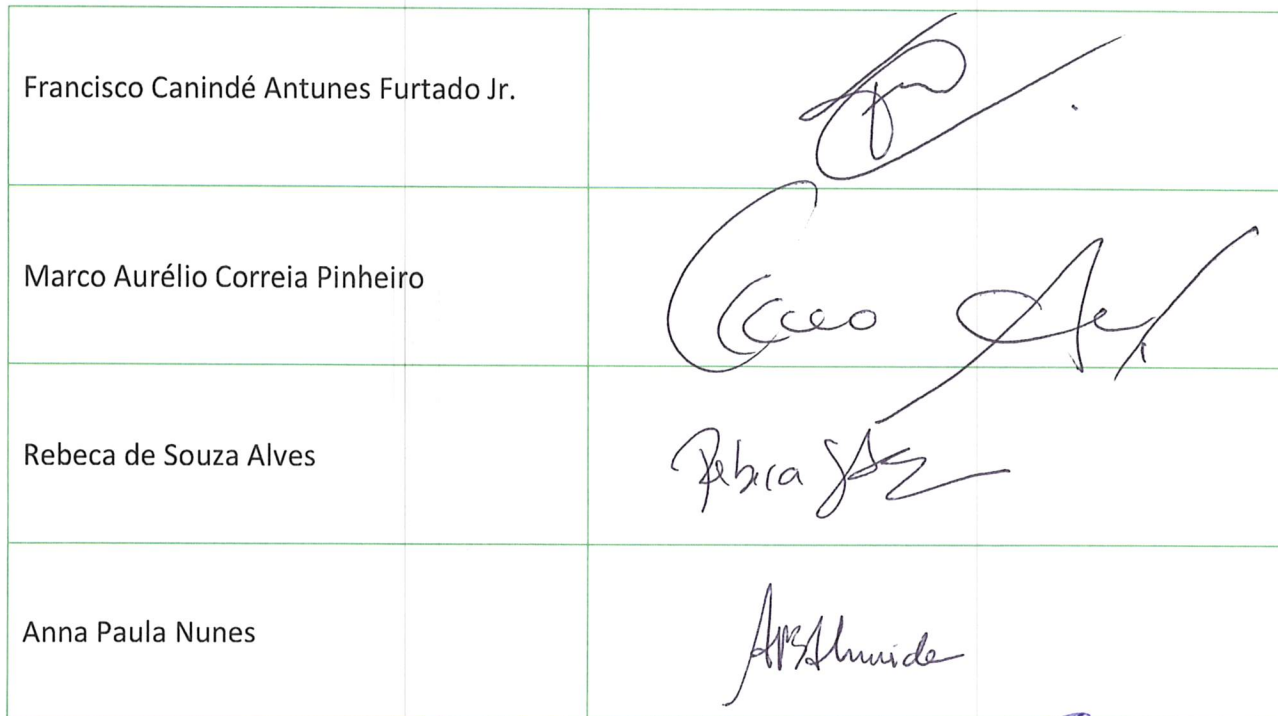 Francisco Canindé Antunes Furtado Jr.
Marco Aurélio Correia Pinheiro
Rebeca de Souza Alves
Rebeca
Anna Paula Nunes
APSAlmeida